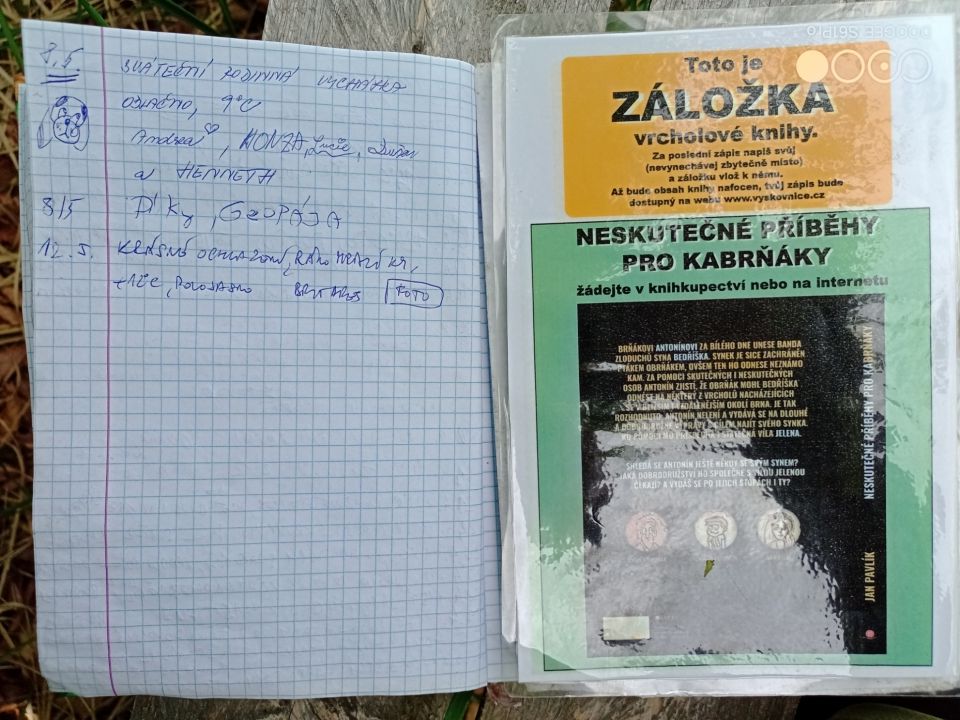 8.5
SVÁTEČNÍ RODINNÁ VYCHÁZKA
OBLAČNO, 9°C
Andrea, HONZA, Lucie, Dušan
a HENNETH
8/5 Díky, GEOPÁJA
12.5. KRÁSNÉ OCHLAZENÍ, RÁNO
+12°C, POLOJASNO FOTO
Toto je
ZÁLOŽKA
vrcholové knihy.
Za poslední zápis napiš svůj
(nevynechávej zbytečně místo)
a záložku vlož k němu.
Až bude obsah knihy nafocen, tvůj zápis bude
dostupný na webu www.vyskovnice.cz
NESKUTEČNÉ PŘÍBĚHY
PRO KABRŇÁKY
žádejte v knihkupectví nebo na internetu
BRŇÁKOVI ANTONÍNOVI ZA BÍLÉHO DNE UNESE BANDA
ZLODUCHŮ SYNA BEDŘIŠKA. SYNEK JE SICE ZACHRÁNĚN
PTÁKEM OBRŇÁKEM, OVŠEM TEN HO ODNESE NEZNÁMO
KAM. ZA POMOCI SKUTEČNÝCH I NESKUTEČNÝCH
OSOB ANTONÍN ZJISTÍ, ŽE OBRŇÁK MOHL BEDŘIŠKA
ODNÉST NA NĚKTERÝ Z VRCHOLŮ NACHÁZEJÍCÍCH
SE V BLIZŠÍM I VZDÁLENĚJŠÍM OKOLÍ BRNA. JE TAK
ROZHODNUTO. ANTONÍN NELENÍ A VYDÁVÁ SE NA DLOUHÉ
A DOBRODRUŽNÉ VÝPRAVY S CÍLEM NAJÍT SVÉHO SYNKA.
KU POMOCI MU PŘISPĚCHÁ I STATEČNÁ VÍLA JELENA.
SHLEDÁ SE ANTONÍN JEŠTĚ NĚKDY SE SVÝM SYNEM?
JAKÁ DOBRODRUŽSTVÍ HO SPOLEČNĚ S VÍLOU JELENOU
ČEKAJÍ? A VYDÁŠ SE PO JEJICH STOPÁCH I TY?
NESKUTEČNÉ PŘÍBĚHY PRO KABRŇÁKY
JAN PAVLÍK
DOOGEE S61Pro